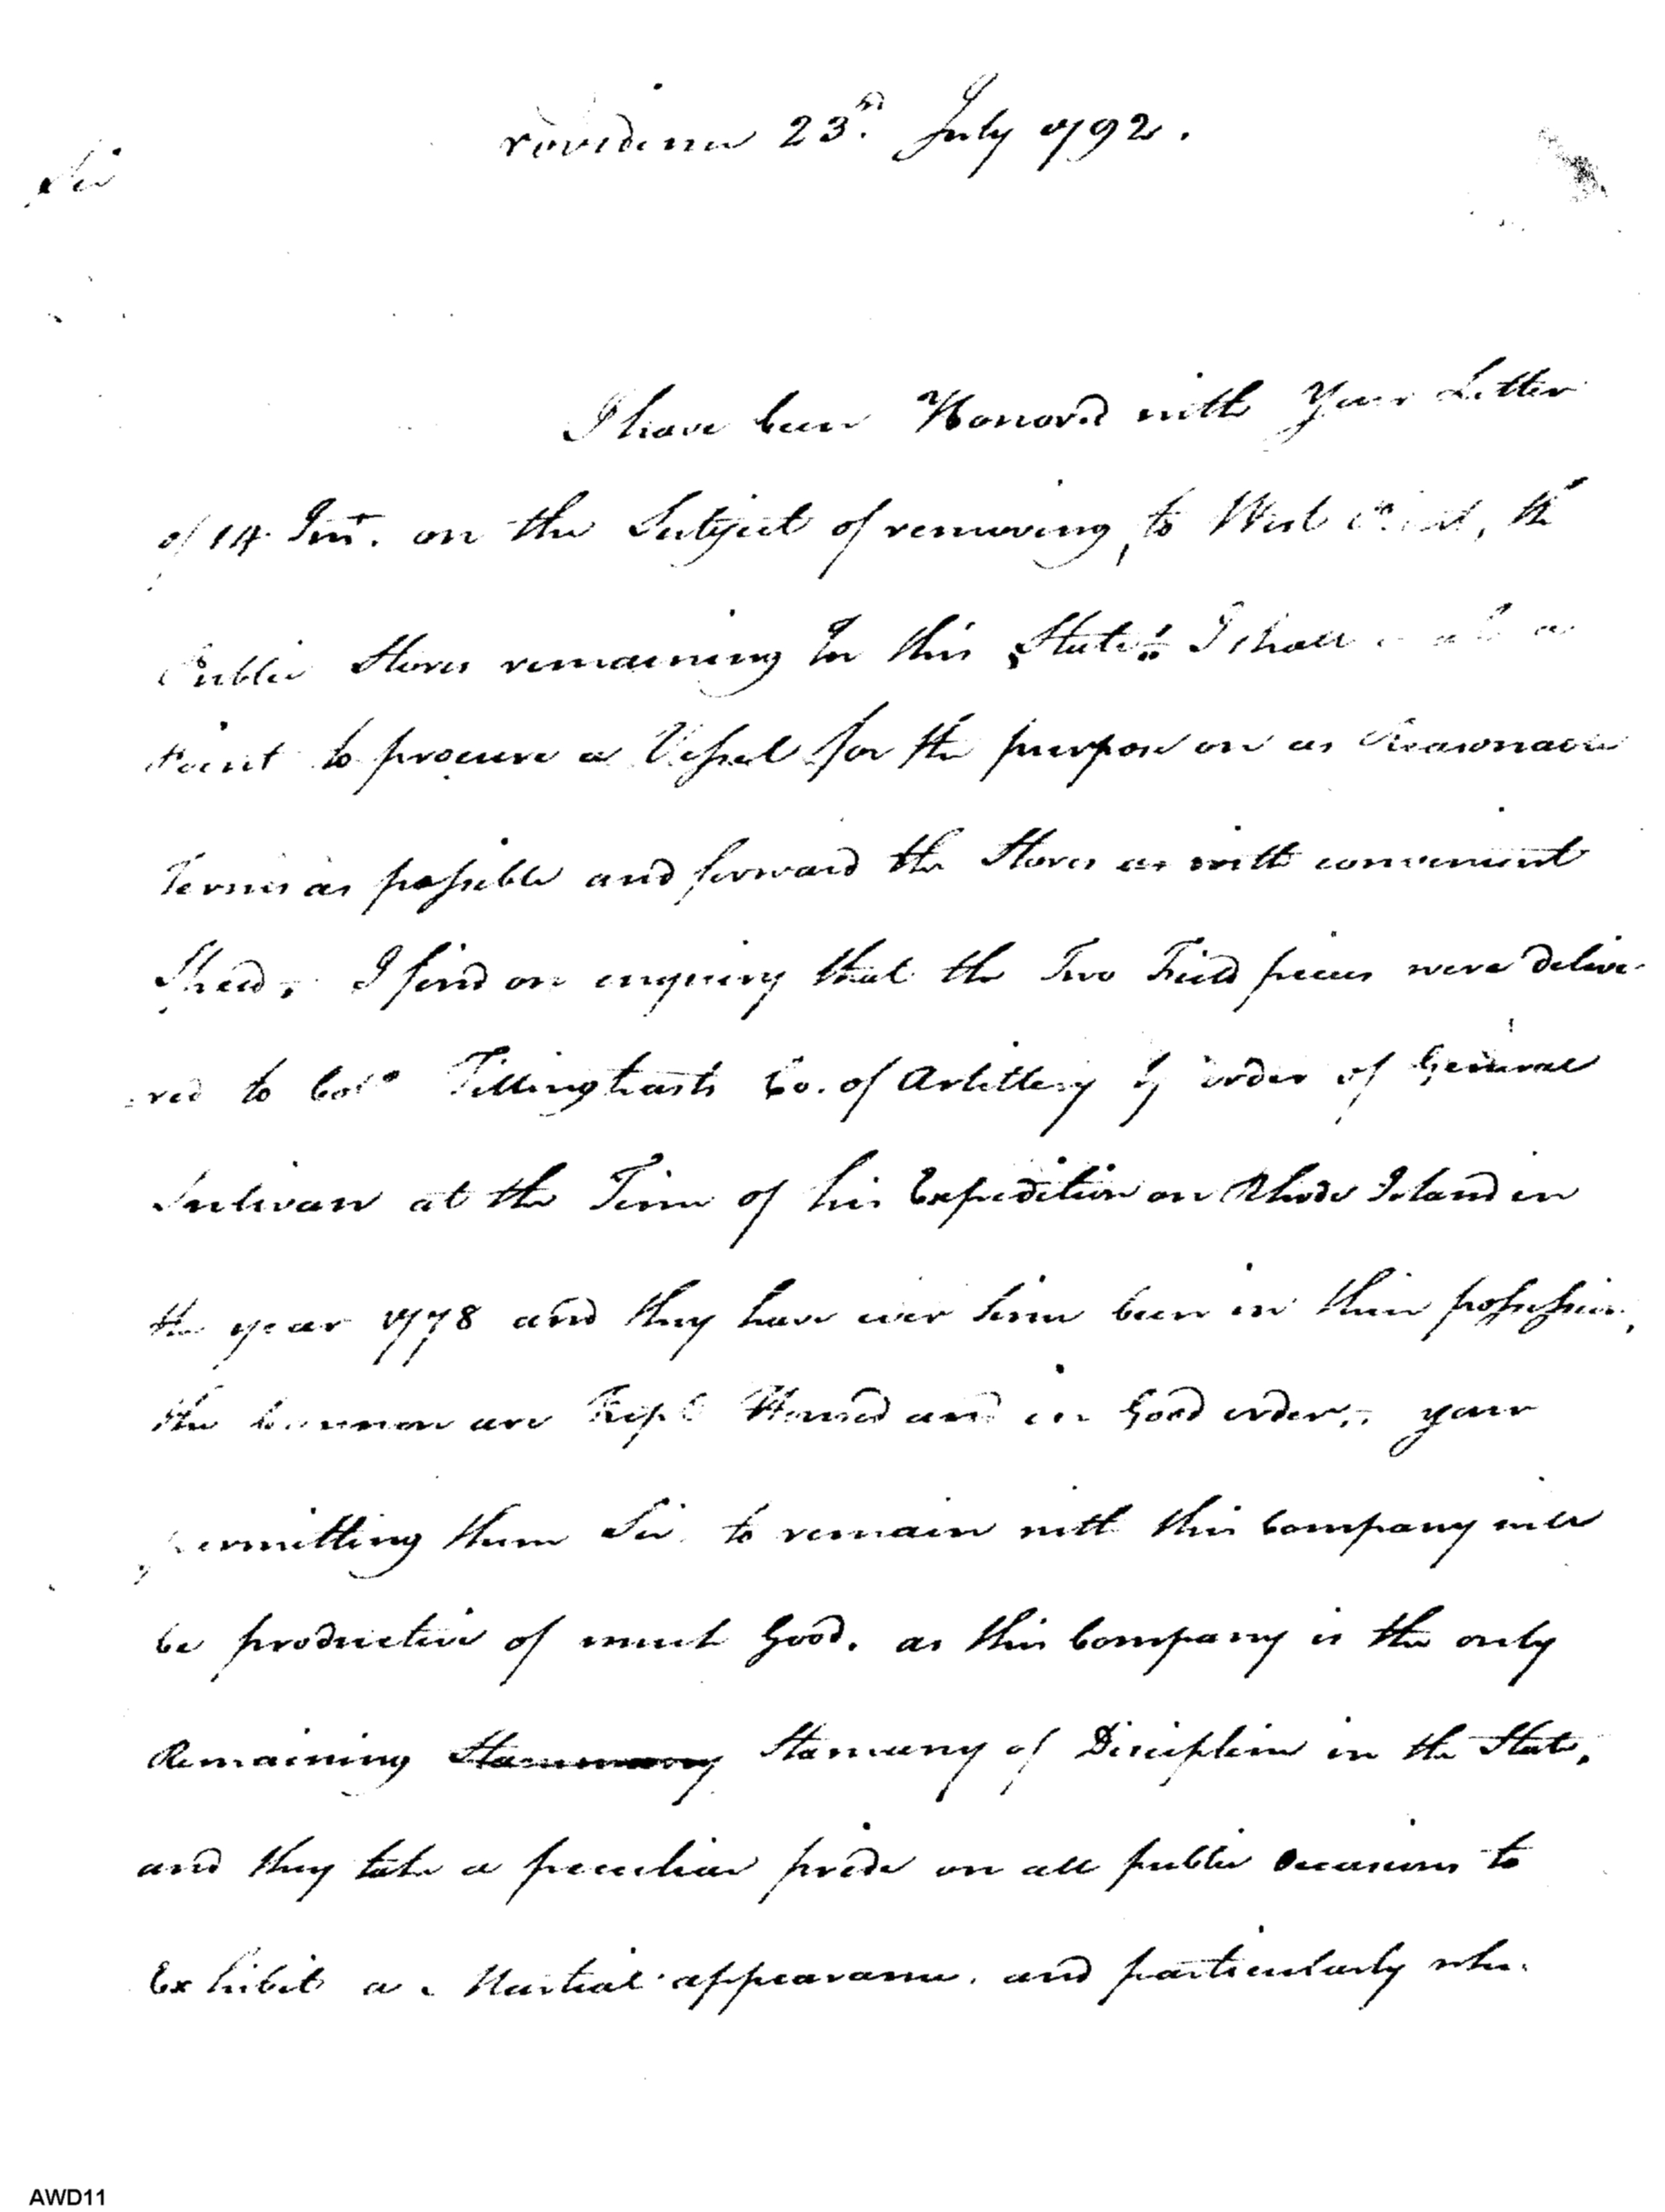 rovidence 23.rd July 1792.
Sir
I have been Honor.d with Your Letter
of 14 Inst. on the Subject of removing, to West Point, the
Public Stores remaining In this State. I shall
Point to procure a Vessel for the purpose on as Reasonable
Terms as possible and forward the Stores as with convenient
Speed. I find on enquiry that the Two Field pieces were delive-
red to Colo Tillinghasts Co. of Artillery by order of General
Sulivan at the Time of his Expedition on Rhode Island in
the year 1778 and they have ever Since been in their possession,
the Cannon are Kept Housed and in Good order, your
permitting them Sir to remain with this Company will
be productive of much Good. as this Company is the only
Remaining Stammany of Discipline in the State,
and they take a peculiar pride on all public Occasions to
Exhibit a Martial appearance. and particularly when
AWD11